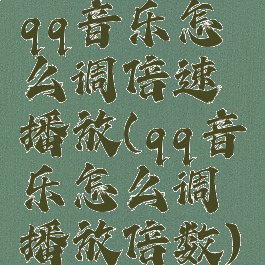 qq音乐怎
么调倍速
播放(qq音
乐怎么调
播放倍数)